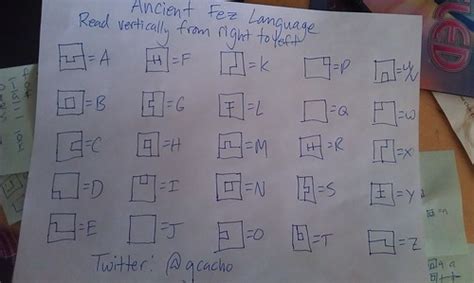 Ancient Fez Language
Read vertically from right to left
=A =F =K =P =U/V
=B =G =L =Q =W
=C =H =M =R =X
=D =I =N =S =Y
=E =J =O =T =Z
Twitter: @gcacho